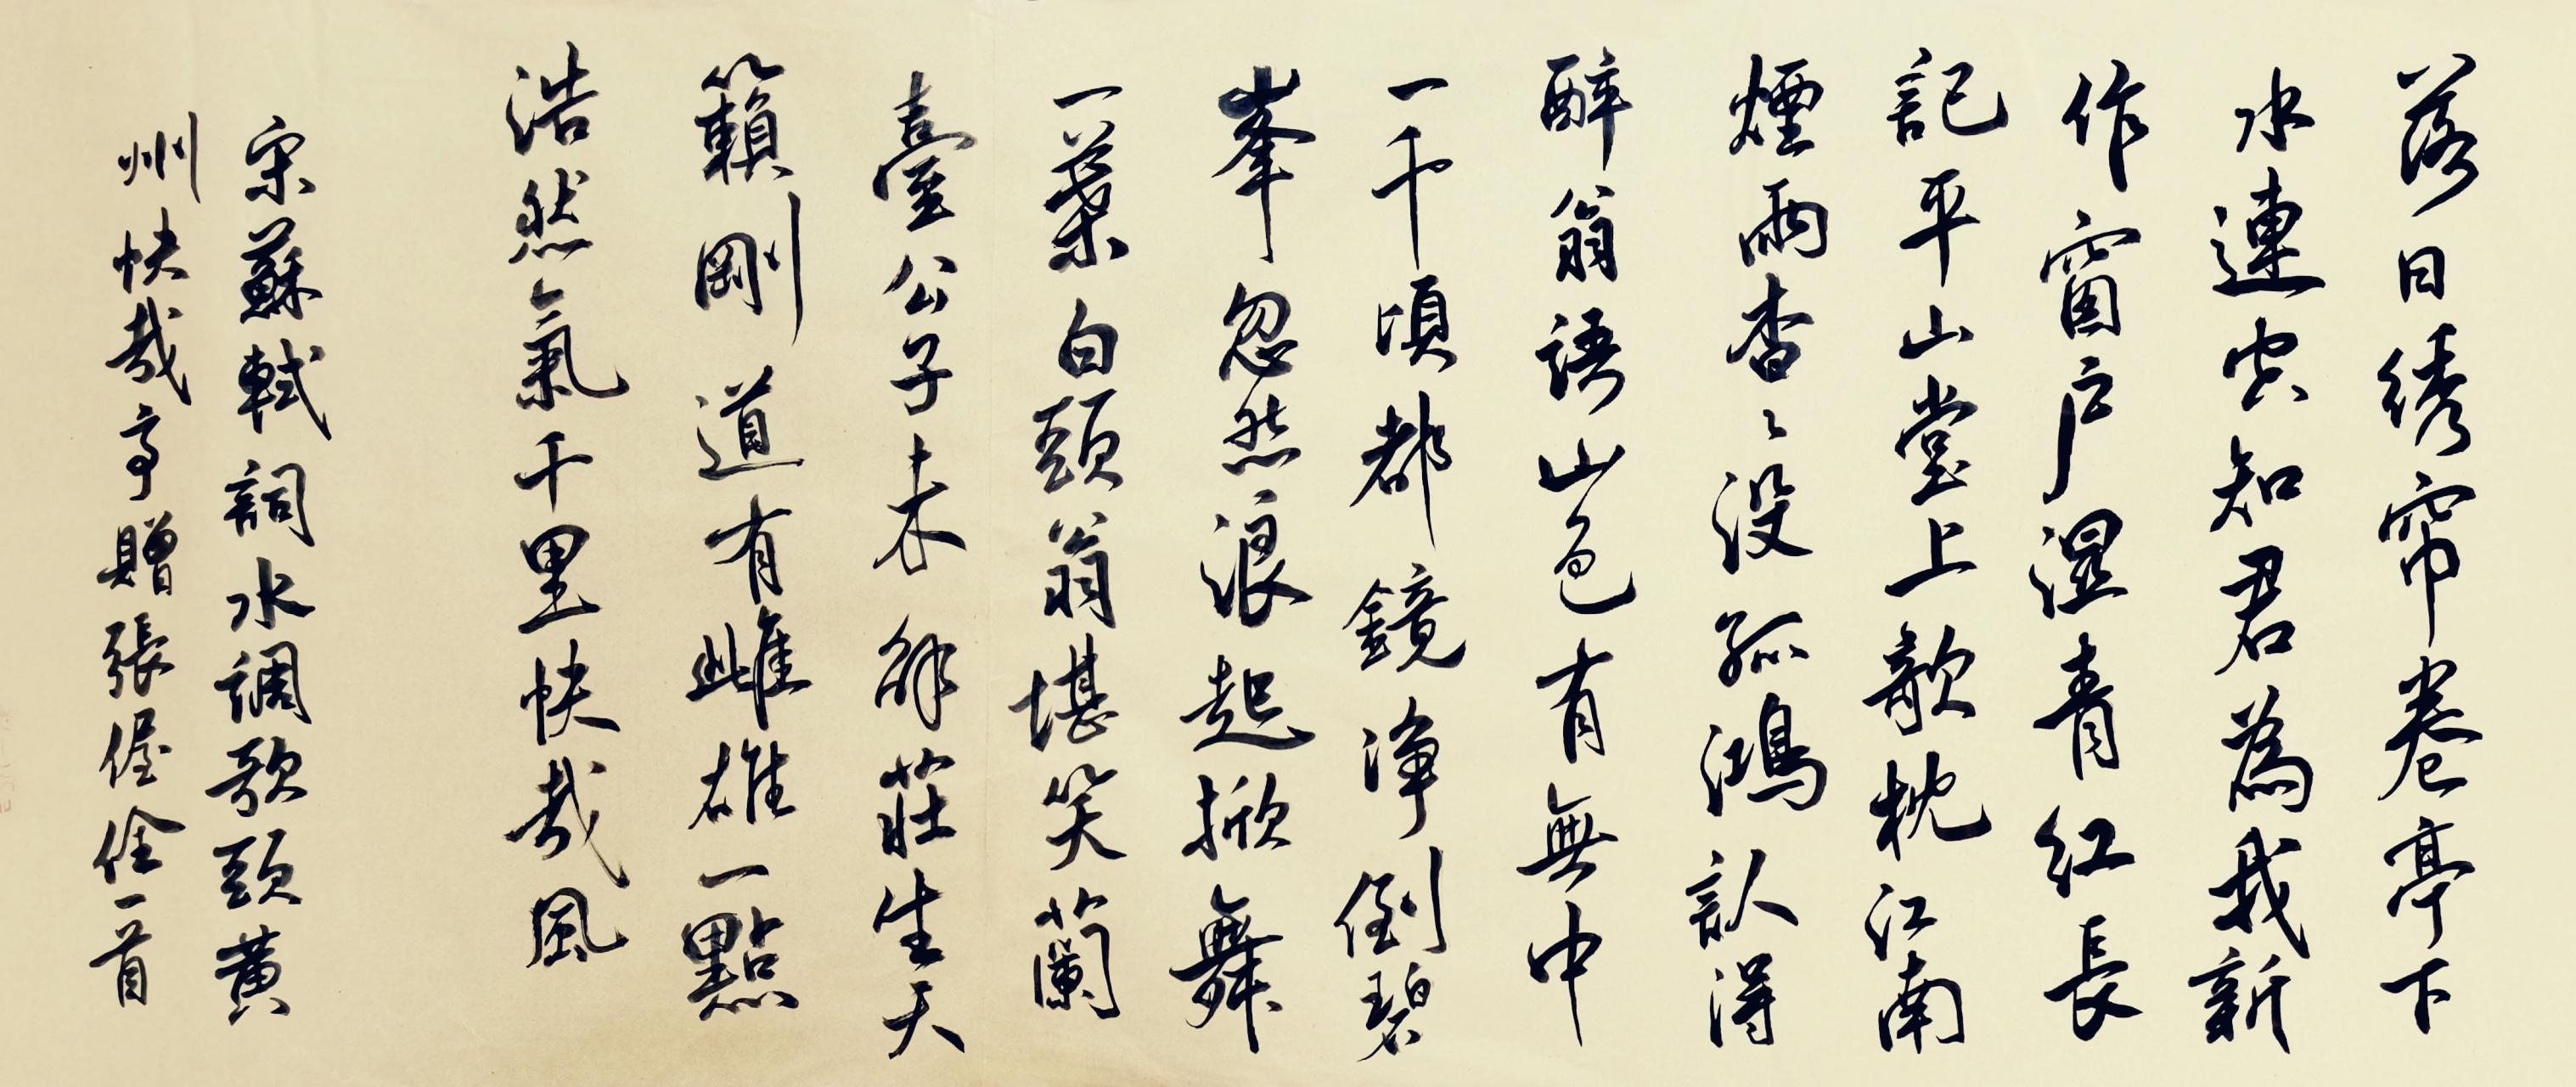 落日绣帘卷亭下
水連空知君為我新
作窗户濕青红長
記平山堂上欹枕江南
煙雨杳〻没孤鴻認得
醉翁語山色有無中
一千頃都鏡净倒碧
峯忽然浪起掀舞
一葉白頭翁堪笑蘭
臺公子未解莊生天
籟剛道有雌雄一點
浩然氣千里快哉風
宋蘇軾詞水調歌頭黄
州快哉亭贈張偓佺一首